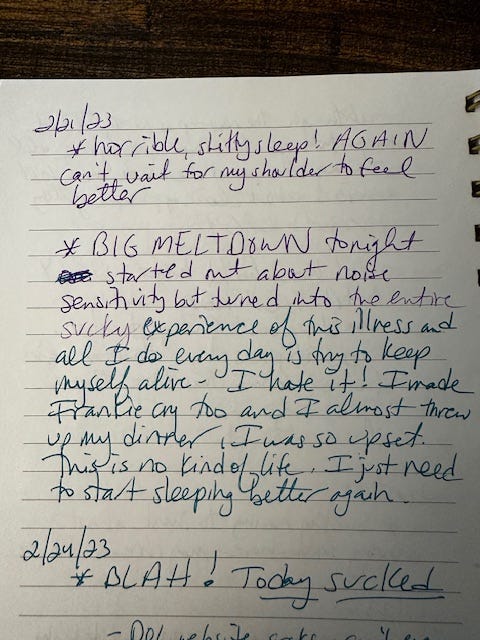 2/21/23
* horrible, shitty sleep! AGAIN
can't wait for my shoulder to feel
better
* BIG MELTDOWN tonight
started out about noise
sensitivity but turned into the entire
sucky experience of this illness and
all I do every day is try to keep
myself alive - I hate it! I made
Frankie cry too and I almost threw
up my dinner, I was so upset.
This is no kind of life. I just need
to start sleeping better again.
2/24/23
* BLAH! Today sucked
- website